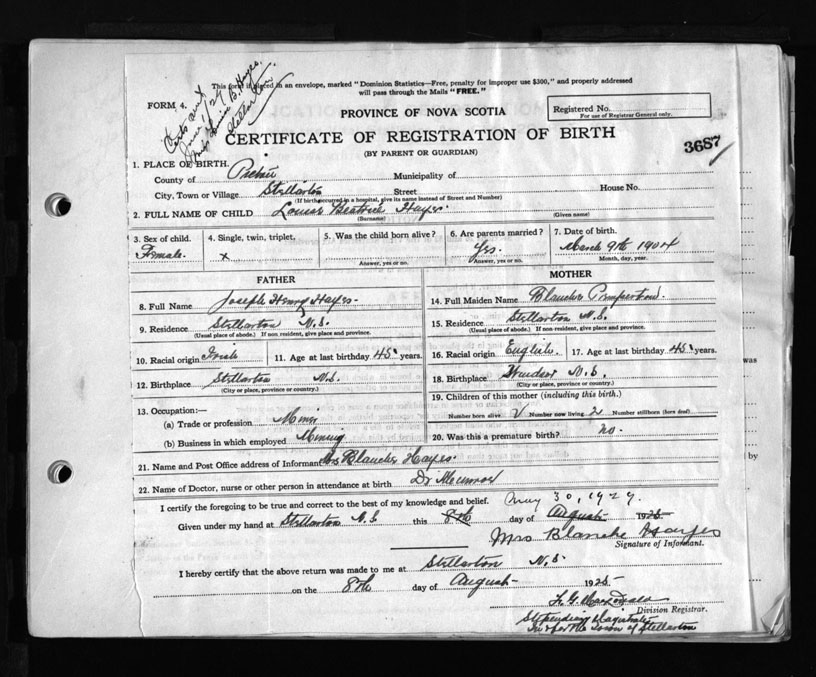 This form if placed in an envelope, marked "Dominion Statistics—Free, penalty for improper use $300," and properly addressed
will pass through the Mails "FREE."
FORM
Registered No.
For use of Registrar General only.
PROVINCE OF NOVA SCOTIA
CERTIFICATE OF REGISTRATION OF BIRTH
3687
(BY PARENT OR GUARDIAN)
1. PLACE OF BIRTH.
County of Pictou Municipality of
City, Town or Village Stellarton Street House No.
(If birth occurred in a hospital, give its name instead of Street and Number)
2. FULL NAME OF CHILD Louise Beatrice Hayes.
(Surname) (Given name)
3. Sex of child. 4. Single, twin, triplet. 5. Was the child born alive? 6. Are parents married? 7. Date of birth.
Female. x Yes. March 9th 1904
Answer, yes or no. Answer, yes or no. Month, day, year.
FATHER MOTHER
8. Full Name Joseph Henry Hayes. 14. Full Maiden Name Blanche
9. Residence Stellarton N.S. 15. Residence Stellarton N.S.
(Usual place of abode.) If non resident, give place and province. (Usual place of abode.) If non resident, give place and province.
10. Racial origin Irish 11. Age at last birthday 45 years. 16. Racial origin English. 17. Age at last birthday 45 years.
12. Birthplace Stellarton N.S. 18. Birthplace Windsor N.S.
(City or place, province or country.) (City or place, province or country.)
13. Occupation:— 19. Children of this mother (including this birth.)
(a) Trade or profession Miner Number born alive 2 Number now living 2 Number stillborn (born dead)
(b) Business in which employed Mining 20. Was this a premature birth? no.
21. Name and Post Office address of Informant Mrs Blanche Hayes.
22. Name of Doctor, nurse or other person in attendance at birth Dr Munroe
I certify the foregoing to be true and correct to the best of my knowledge and belief. May 30, 1929.
Given under my hand at Stellarton N.S this 8th day of August 1925
Mrs Blanche Hayes
Signature of Informant.
I hereby certify that the above return was made to me at Stellarton N.S.
on the 8th day of August 1925
Division Registrar.
Stipendiary Magistrate
In & for the Town of Stellarton
was
by